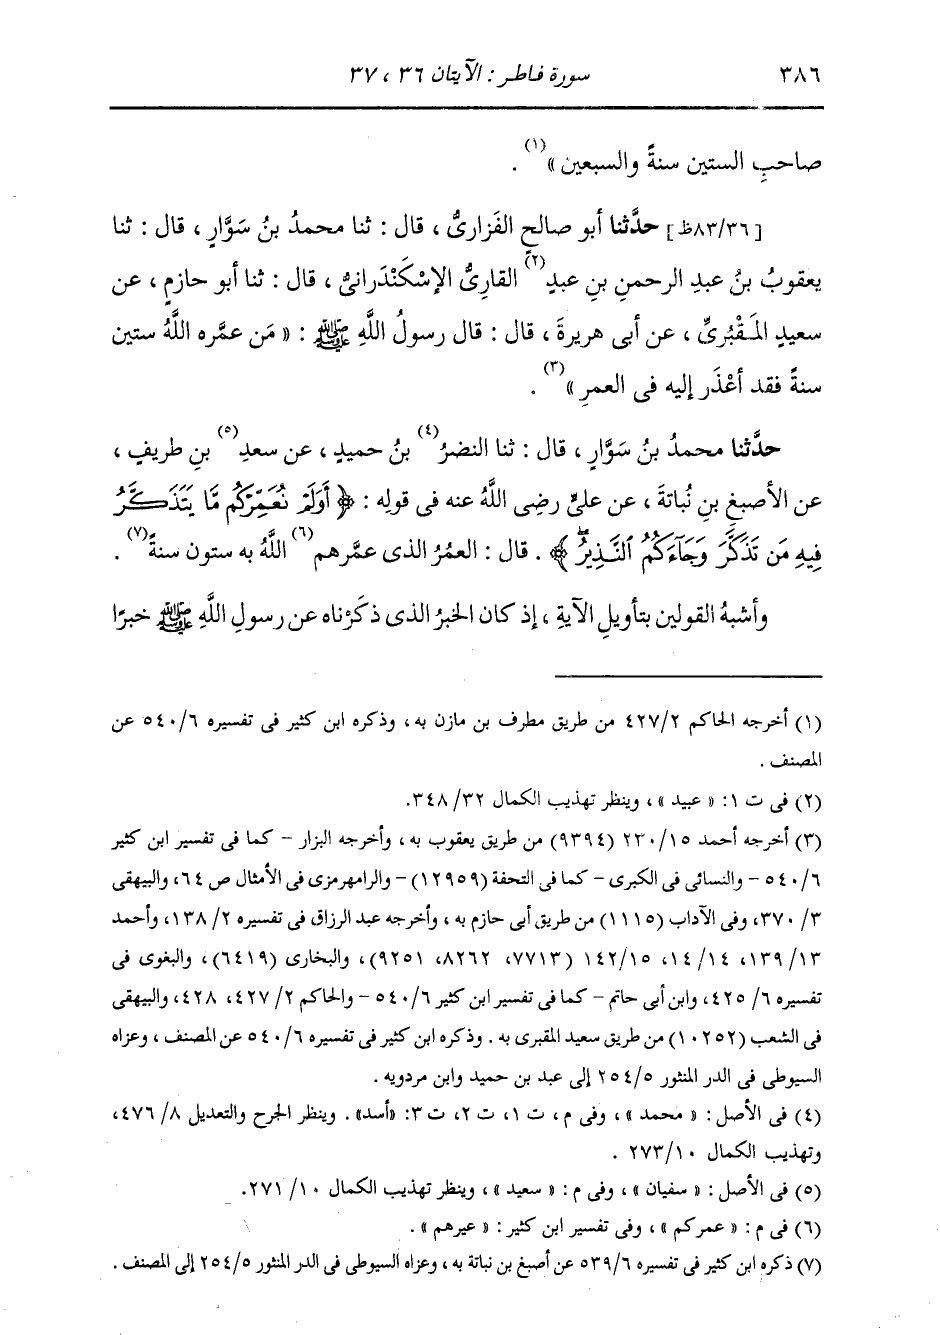 ٣٨٦ سورة فاطر : الآيتان ٣٦ ، ٣٧
صاحبِ الستين سنةً والسبعين »(١) .
[٨٣/٣٦ظ] حدَّثنا أبو صالحٍ الفَزارىُّ ، قال : ثنا محمدُ بنُ سَوَّارٍ ، قال : ثنا
يعقوبُ بنُ عبدِ الرحمنِ بنِ عبدٍ(٢) القارِىُّ الإسْكَنْدَرانىُّ ، قال : ثنا أبو حازمٍ ، عن
سعيدٍ المَقْبُرِىِّ ، عن أبى هريرةَ ، قال : قال رسولُ اللَّهِ ﷺ : « مَن عمَّره اللَّهُ ستين
سنةً فقد أعْذَر إليه فى العمرِ »(٣) .
حدَّثنا محمدُ بنُ سَوَّارٍ ، قال : ثنا النضرُ(٤) بنُ حميدٍ ، عن سعدِ(٥) بنِ طريفٍ ،
عن الأصبغِ بنِ نُباتةَ ، عن علىٍّ رضِى اللَّهُ عنه فى قولِه : ﴿ أَوَلَمْ نُعَمِّرْكُم مَّا يَتَذَكَّرُ
فِيهِ مَن تَذَكَّرَ وَجَآءَكُمُ ٱلنَّذِيرُ ﴾ . قال : العمُرُ الذى عمَّرهم(٦) اللَّهُ به ستون سنةً(٧) .
وأشبهُ القولين بتأويلِ الآيةِ ، إذ كان الخبرُ الذى ذكَرْناه عن رسولِ اللَّهِ ﷺ خبرًا
(١) أخرجه الحاكم ٤٢٧/٢ من طريق مطرف بن مازن به ، وذكره ابن كثير فى تفسيره ٥٤٠/٦ عن
المصنف .
(٢) فى ت ١: « عبيد » ، وينظر تهذيب الكمال ٣٢/ ٣٤٨.
(٣) أخرجه أحمد ٢٣٠/١٥ (٩٣٩٤) من طريق يعقوب به ، وأخرجه البزار - كما فى تفسير ابن كثير
٥٤٠/٦ - والنسائى فى الكبرى - كما فى التحفة (١٢٩٥٩) - والرامهرمزى فى الأمثال ص ٦٤، والبيهقى
٣/ ٣٧٠، وفى الآداب (١١١٥) من طريق أبى حازم به ، وأخرجه عبد الرزاق فى تفسيره ٢/ ١٣٨، وأحمد
١٣/ ١٣٩، ١٤/ ١٤، ١٤٢/١٥ (٧٧١٣، ٨٢٦٢، ٩٢٥١)، والبخارى (٦٤١٩)، والبغوى فى
تفسيره ٦/ ٤٢٥، وابن أبى حاتم - كما فى تفسير ابن كثير ٥٤٠/٦ - والحاكم ٢/ ٤٢٧، ٤٢٨، والبيهقى
فى الشعب (١٠٢٥٢) من طريق سعيد المقبرى به . وذكره ابن كثير فى تفسيره ٥٤٠/٦ عن المصنف ، وعزاه
السيوطى فى الدر المنثور ٢٥٤/٥ إلى عبد بن حميد وابن مردويه .
(٤) فى الأصل : « محمد » ، وفى م ، ت ١، ت ٢، ت ٣: «أسد» . وينظر الجرح والتعديل ٨/ ٤٧٦،
وتهذيب الكمال ٢٧٣/١٠ .
(٥) فى الأصل : « سفيان » ، وفى م : « سعيد » ، وينظر تهذيب الكمال ١٠/ ٢٧١.
(٦) فى م : « عمركم » ، وفى تفسير ابن كثير : « عيرهم » .
(٧) ذكره ابن كثير فى تفسيره ٥٣٩/٦ عن أصبغ بن نباتة به ، وعزاه السيوطى فى الدر المنثور ٢٥٤/٥ إلى المصنف .